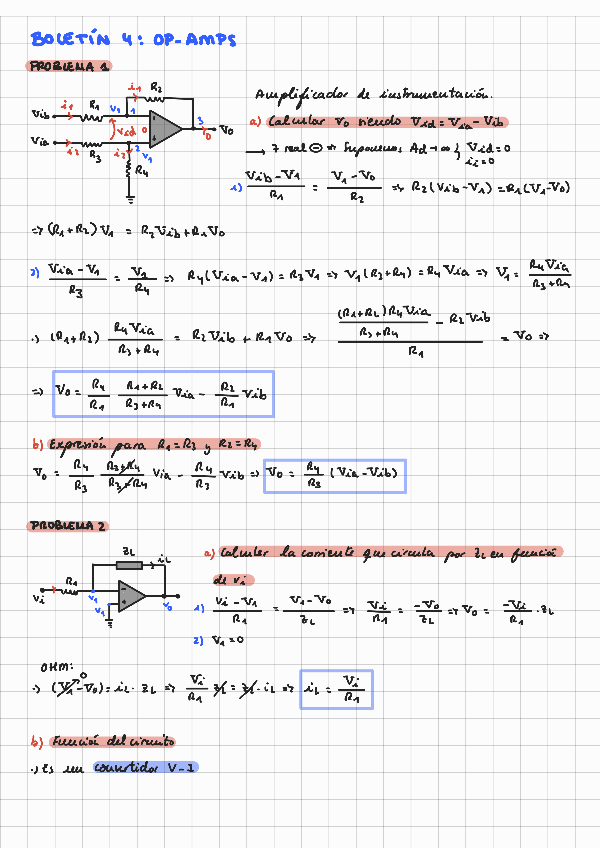 BOLETÍN 4: OP-AMPS
PROBLEMA 1
Amplificador de instrumentación.
a) Calcular V0 siendo Vid = Via − Vib
R1 R2 R3 R4 Vib Via V1 Vid V0 i1 i1 i2 i2 1 2 3 0 0
Suponemos Ad → ∞ { Vid = 0
ii = 0
1) (Vib − V1)/R1 = (V1 − V0)/R2 ⇒ R2(Vib − V1) = R1(V1 − V0)
⇒ (R1 + R2) V1 = R2 Vib + R1 V0
2) (Via − V1)/R3 = V1/R4 ⇒ R4(Via − V1) = R3 V1 ⇒ V1(R3 + R4) = R4 Via ⇒ V1 = R4 Via/(R3 + R4)
·) (R1 + R2) R4 Via/(R3 + R4) = R2 Vib + R1 V0 ⇒ ((R1 + R2) R4 Via/(R3 + R4) − R2 Vib)/R1 = V0 ⇒
⇒ V0 = R4/R1 (R1 + R2)/(R3 + R4) Via − R2/R1 Vib
b) Expresión para R1 = R3 y R2 = R4
V0 = R4/R3 (R3 + R4)/(R3 + R4) Via − R4/R3 Vib ⇒ V0 = R4/R3 (Via − Vib)
PROBLEMA 2
a) Calcular la corriente que circula por ZL en función
de vi
ZL iL R1 vi V1 V1 V0
1) (Vi − V1)/R1 = (V1 − V0)/ZL ⇒ Vi/R1 = −V0/ZL ⇒ V0 = −Vi/R1 · ZL
2) V1 = 0
OHM:
·) (V1 − V0) = iL · ZL ⇒ Vi/R1 ZL = ZL · iL ⇒ iL = Vi/R1
b) Función del circuito
·) Es un convertidor V-I